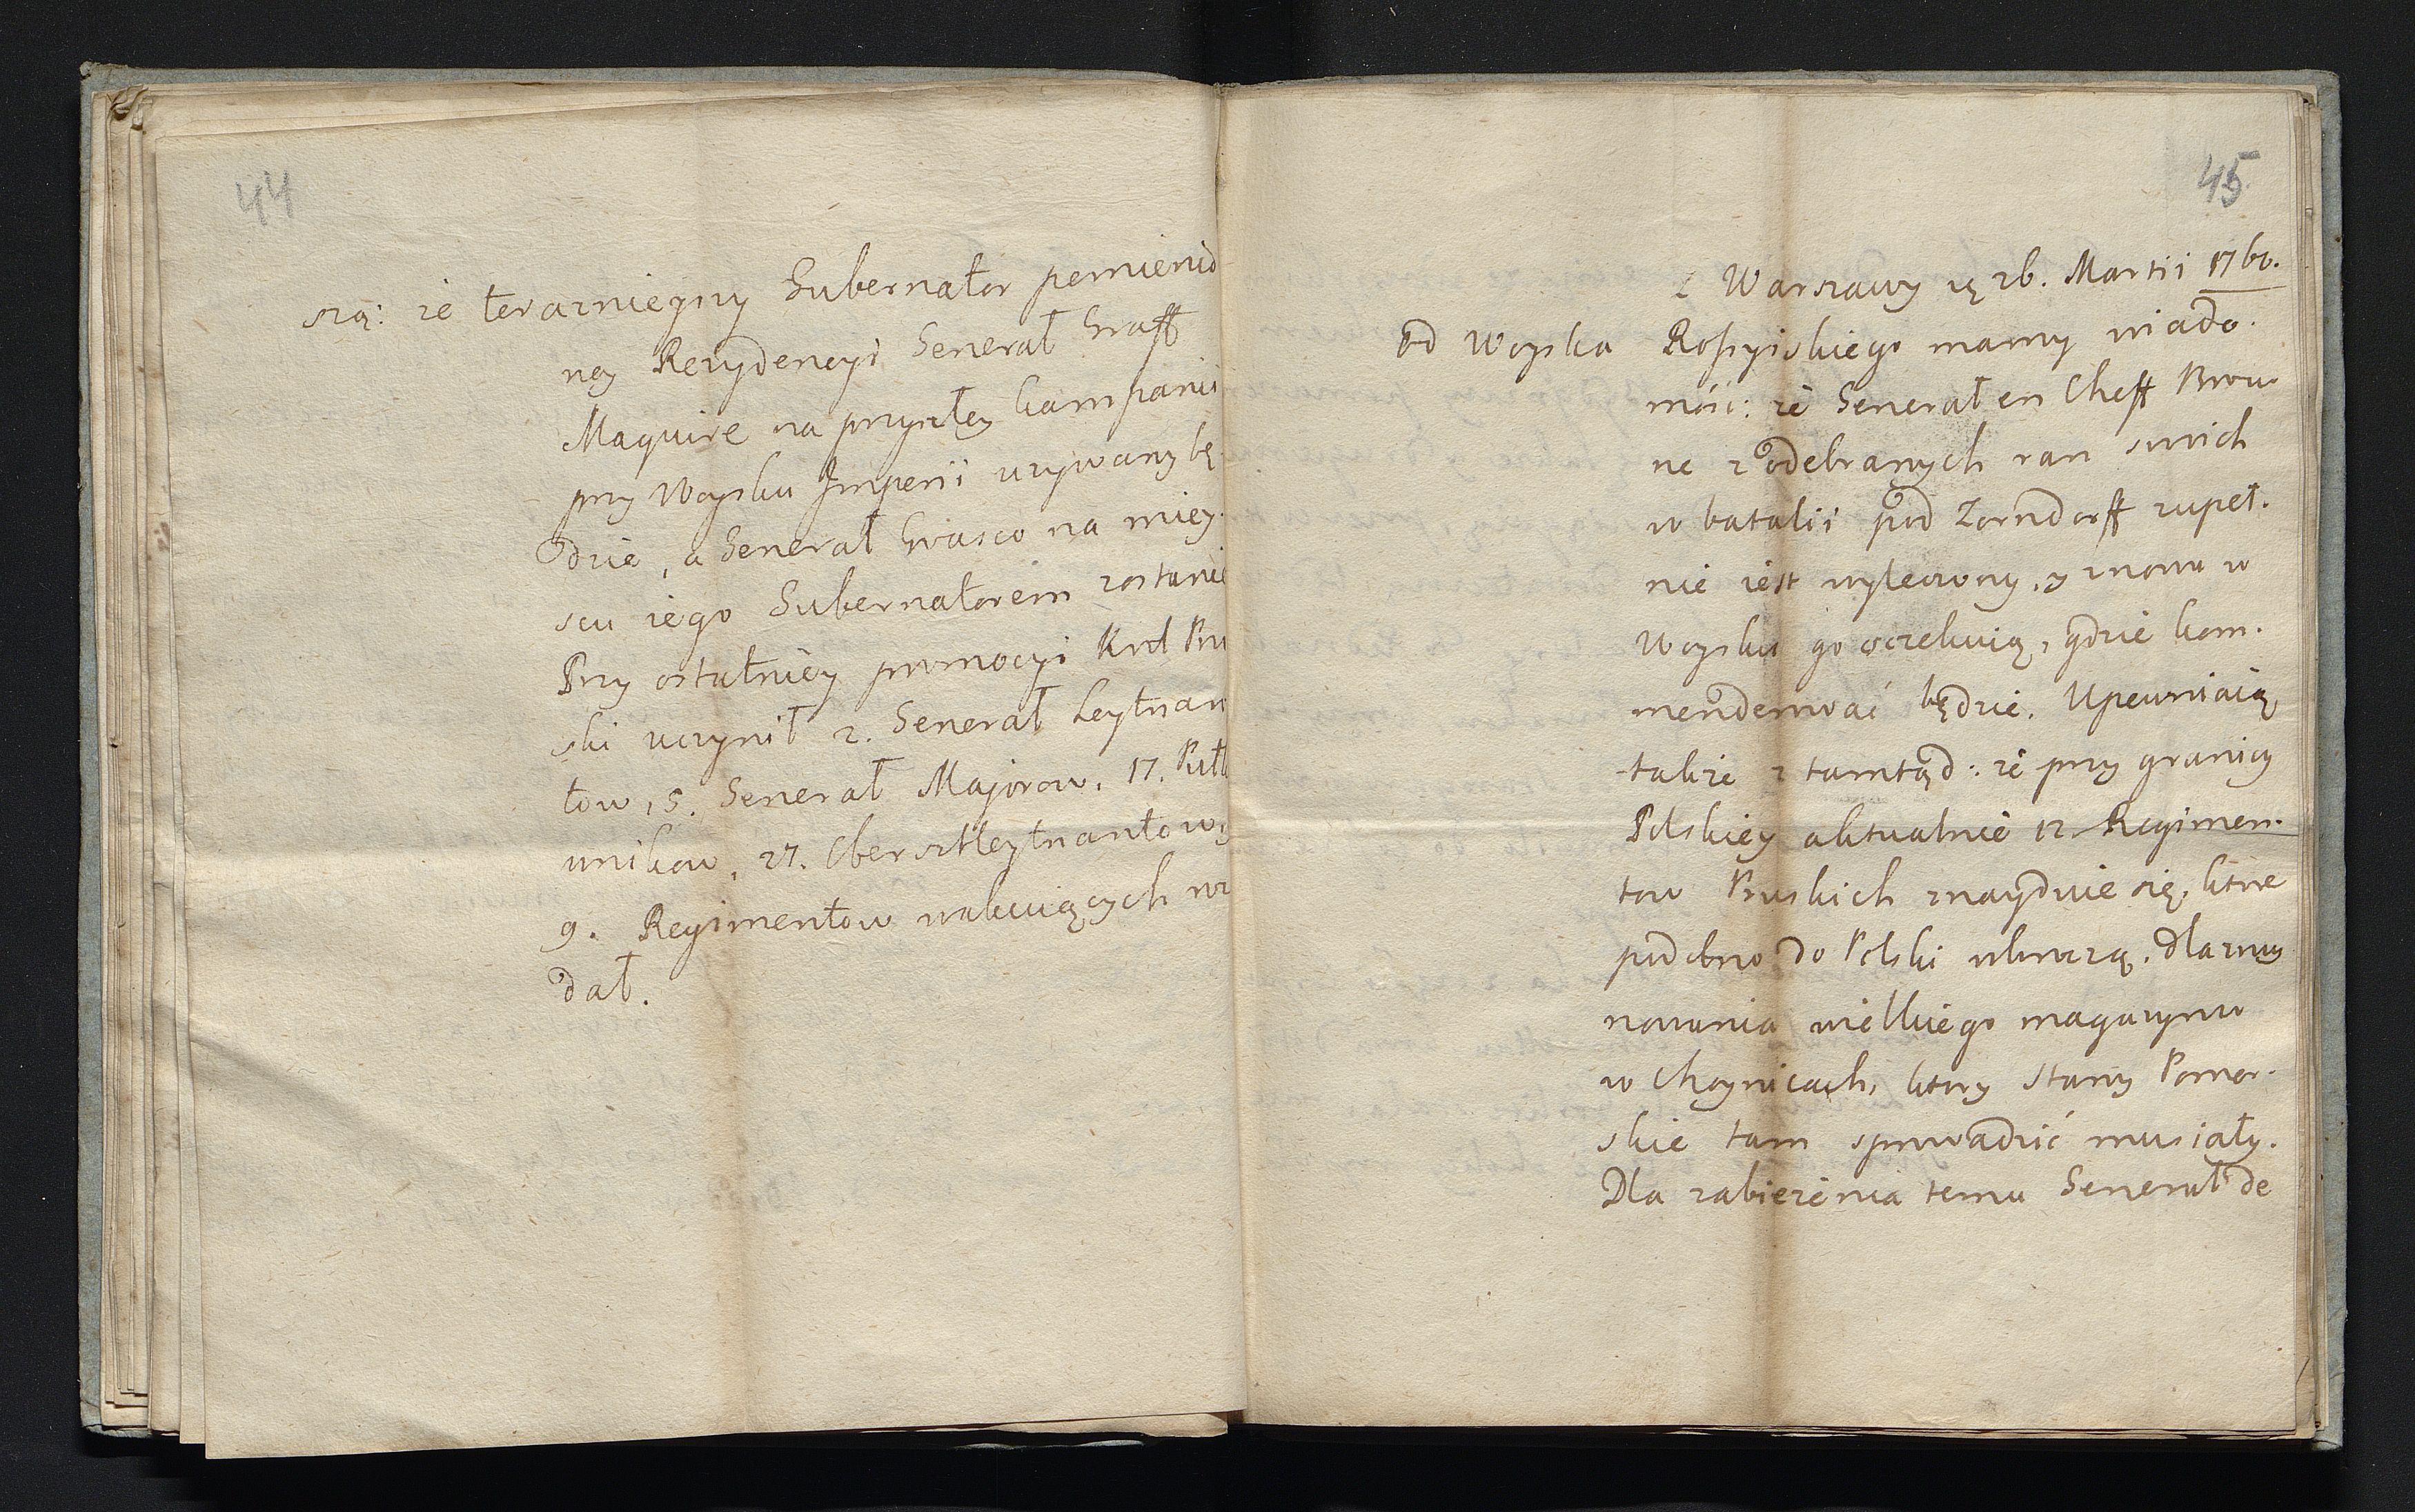 44
szą: że terazniejszy Gubernator pomienio
ney Rezydencyi Generał Graff
Maquire na przyszłey kampanii
przy Woysku Imperii użÿwany bę-
dzie, a Generał Guasco na miey-
scu iego Gubernatorem zostanie
Przy ostatniey promocyi Krol Pru
ski uczynił 2. Generał Leytnan
tow, 5. Generał Majorow, 17. Pułk
unikow, 27. Obersztleytnantow,
9. Regimentow wakuiących
dał.
45
z Warszawy 26. Martii 1760.
Od Woyska Rossyiskiego mamy wiado-
mość: że Generał en Cheff Brow
ne z odebranych ran swich
w batalii pod Zorndorff zupeł-
nie iest wyleczony, y znowu w
Woysku go oczekuią, gdzie kom-
menderować będzie. Upewniaią
także z tamtąd: że przy granicy
Polskiey aktualnie 12 Regimen-
tow Pruskich znayduie się, ktore
podobno do Polski wkroczą, dla ruy
nowania wielkiego magazynu
w Choynicach, ktory Stany Pomor-
skie tam sprowadzić musiały.
Dla zabieżenia temu Generał de